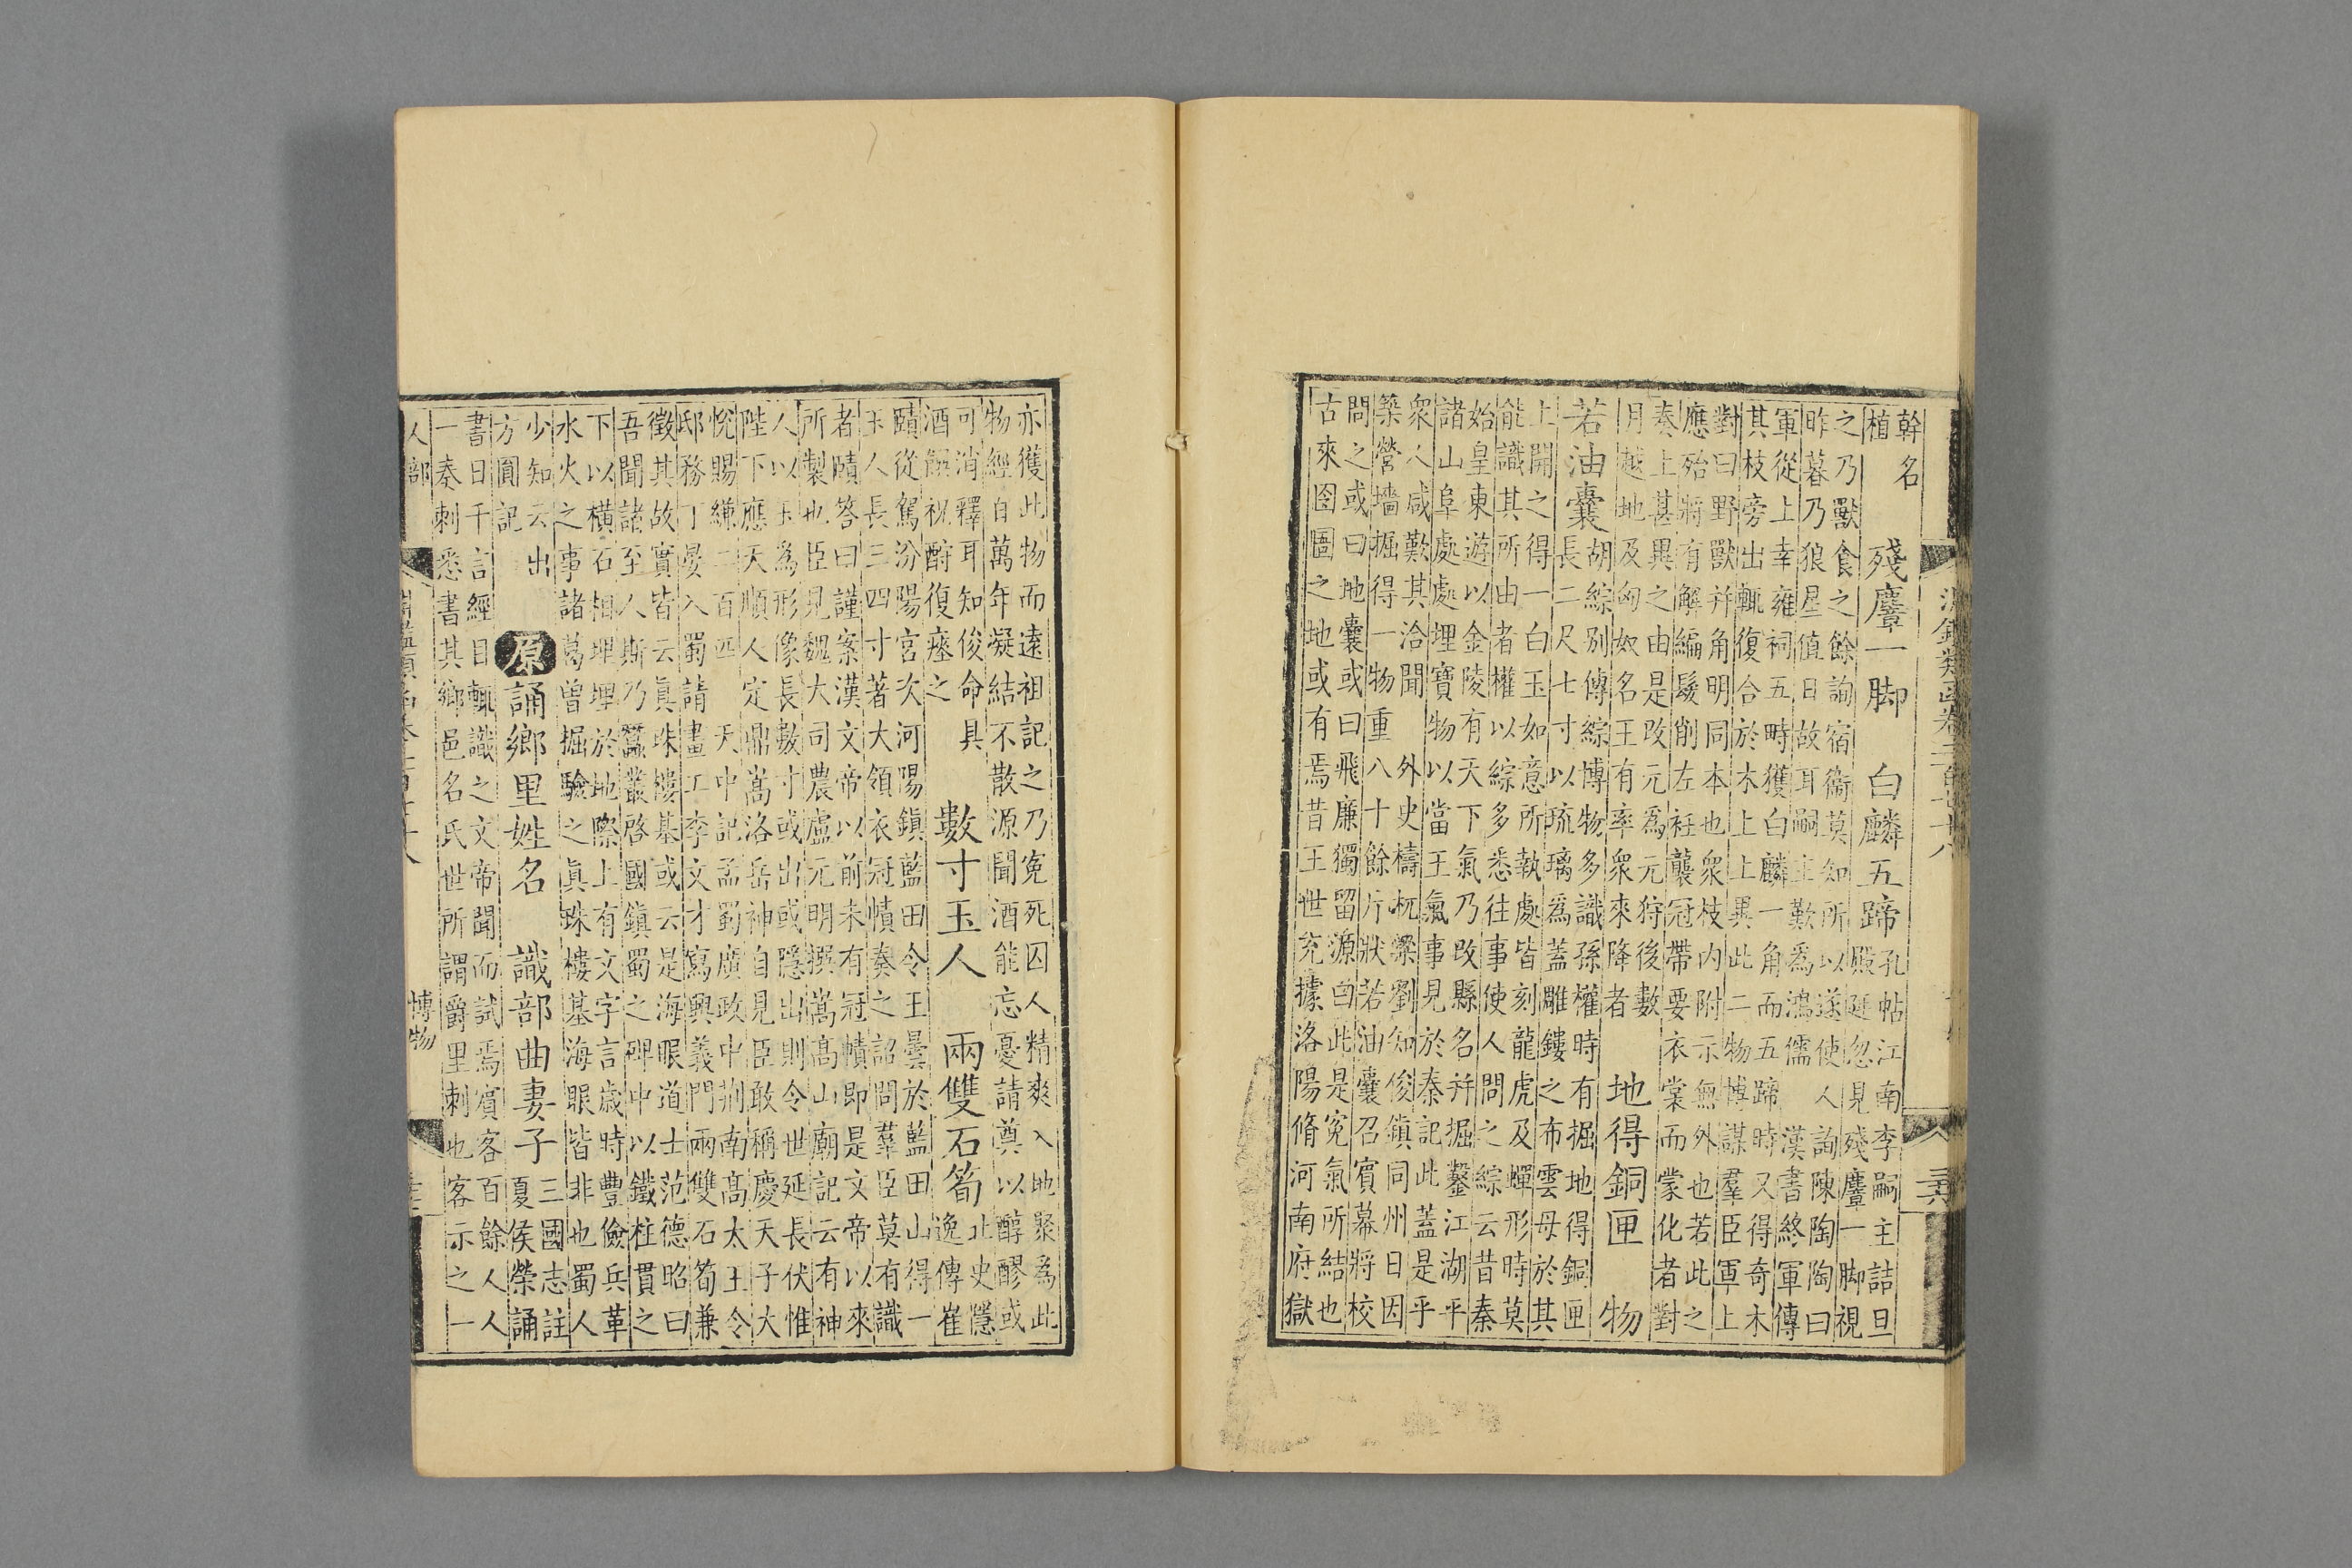 淵鑑類函卷三百七十八
幹名
植
殘麞一脚　白麟五蹄
孔帖江南李嗣主詰旦
殿廷忽見殘麞一脚視
之乃獸食之餘詢宿衞莫知所以遂使人詢陳陶陶曰
昨暮乃狼星值日故耳嗣主歎為鴻儒　漢書終軍傳
軍從上幸雍祠五畤獲白麟一角而五蹄時又得奇木
其枝旁出輒復合於木上上異此二物博謀羣臣軍上
對曰野獸并角明同本也衆枝内附示無外也若此之
應殆將有解編髮削左衽襲冠帶要衣裳而蒙化者對
奏上甚異之由是改元為元狩後數
月越地及匈奴名王有率衆來降者
地得銅匣　物
若油囊
胡綜別傳綜博物多識孫權時有掘地得銅匣
長二尺七寸以琉璃為蓋雕鏤之布雲母於其
上開之得一白玉如意所執處皆刻龍虎及蟬形時莫
能識其所由者權以綜多悉往事使人問之綜云昔秦
始皇東遊以金陵有天下氣乃改縣名并掘鑿江湖平
諸山阜處處埋寶物以當王氣事見於秦記此蓋是乎
衆人咸歎其洽聞　外史檮杌梁劉知俊鎮同州日因
築營墻掘得一物重八十餘斤狀若油囊召賓幕將校
問之或曰地囊或曰飛廉獨留源曰此是冤氣所結也
古來囹圄之地或有焉昔王世充據洛陽脩河南府獄
亦獲此物而遠祖記之乃冤死囚人精爽入地聚為此
物經百萬年凝結不散源聞酒能忘憂請奠以醇醪或
可消釋耳知俊命具
酒饌祝酹復瘞之
數寸玉人　兩雙石筍
北史隱
逸傳崔
賾從駕汾陽宮次河陽鎮藍田令王曇於藍田山得一
玉人長三四寸著大領衣冠幘奏之詔問羣臣莫有識
者賾答曰謹案漢文帝以前未有冠幘即是文帝以來
所製也臣見魏大司農盧元明撰嵩高山廟記云有神
人以玉為形像長數寸或出或隱出則令世延長伏惟
陛下應天順人定鼎嵩洛岳神自見臣敢稱慶天子大
悅賜縑二百匹　天中記孟蜀廣政中荊南高太王令
邸務丁晏入蜀請畫工李文才寫興義門兩雙石筍兼
徵其故實皆云眞珠樓基或云是海眼道士范德昭曰
吾聞諸至人斯乃蠶叢啓國鎮蜀之碑中以鐵柱貫之
下以橫石相埋埋於地際上有文字言歲時豐儉兵革
水火之事諸葛曾掘驗之眞珠樓基海眼皆非也蜀人
少知云出
方圓記
原　誦鄉里姓名　識部曲妻子
三國志註
夏侯榮誦
書日千言經目輒識之文帝聞而試焉賓客百餘人人
一奏刺悉書其鄉邑名氏世所謂爵里刺也客示之一
人部　博物